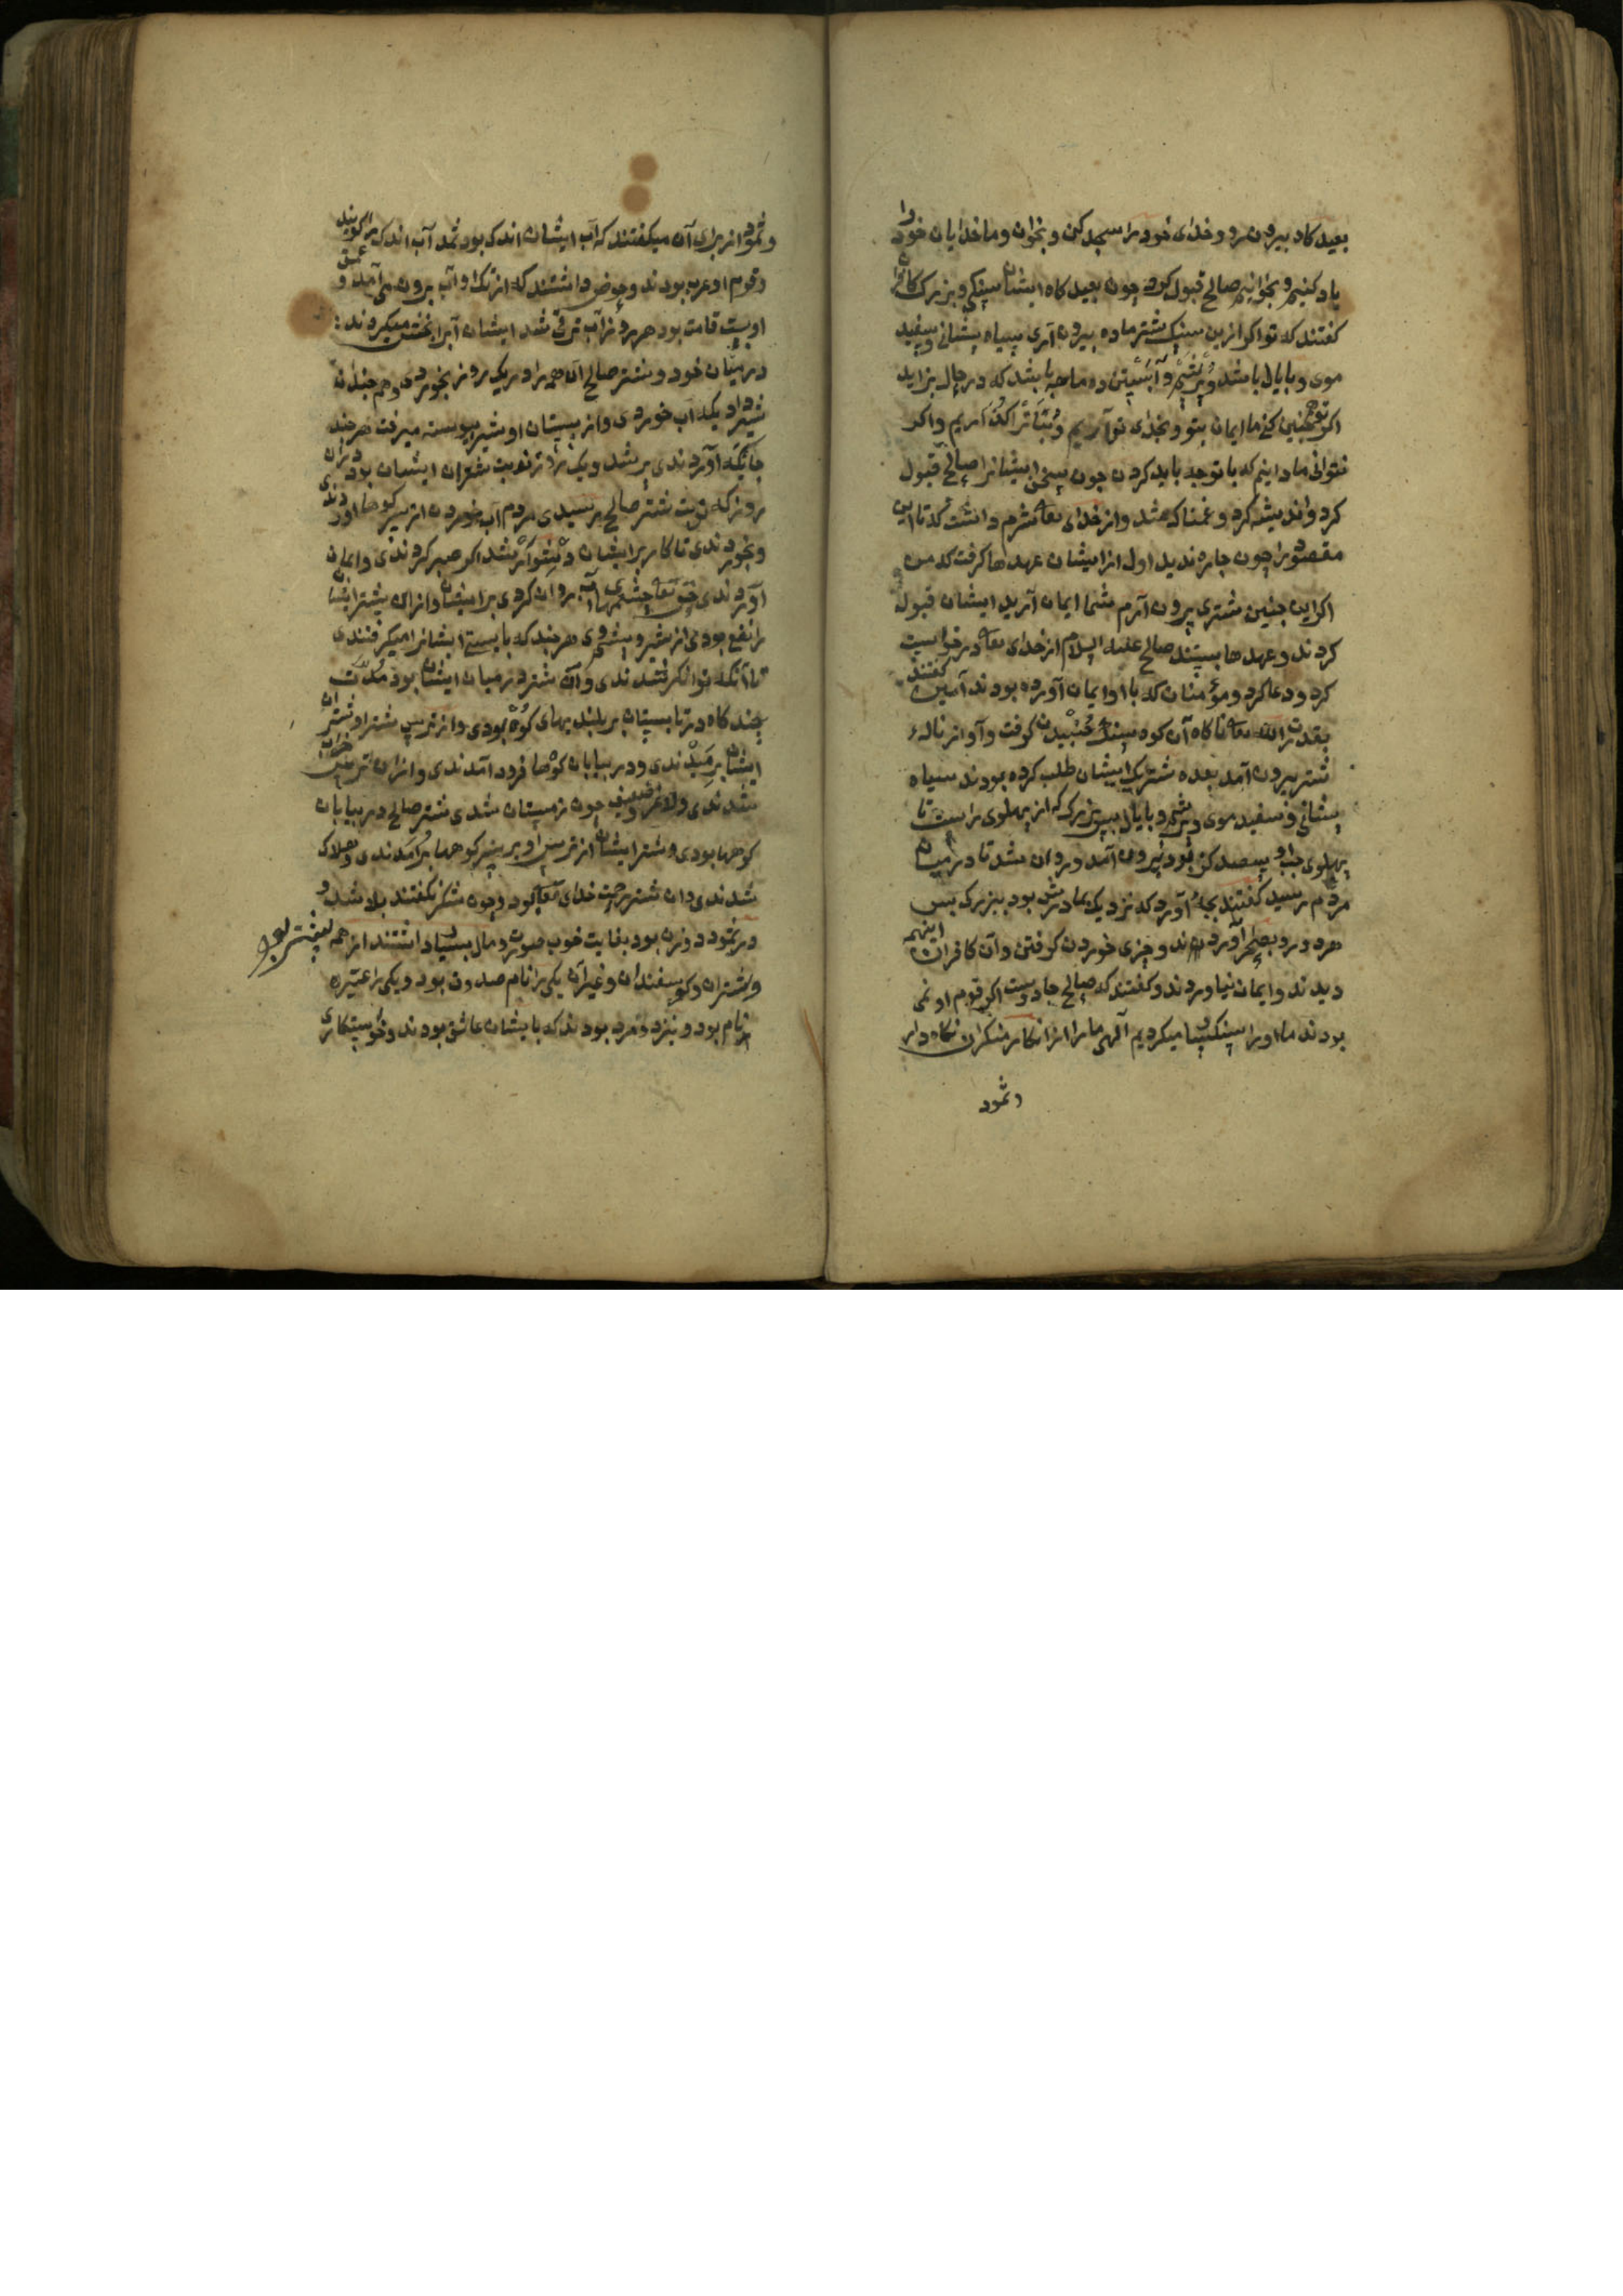 بعید کاه بیرون رو و خدای خود را سجد کن و بخوان و ما خدایان خود را
یاد کنیم و بخوانیم صالح قبول کرد چون بعید کاه ایشان سنکی و بزرک کلانرا
کفتند که تو اکر ازین سنک شتر ماده بیرون آری سیاه پیشانی و سفید
موی و با یال باشد و پر پشم و آبستن ده ماهه باشد که در حال بزاید
اکر تو همچنین کنی ما ایمان بتو و بخدای تو آریم و بتانرا آریم و اکر
نتوانی ما دانیم که با تو چه باید کردن چون سخن ایشانرا صالح قبول
کرد و اندیشه کرد و غمناک شد و از خدای تعا شرم داشت که تا این
مقصود را چون چاره ندید اول از ایشان عهدها کرفت که من
اکر این چنین شتری بیرون آرم شما ایمان آرید ایشان قبول
کردند و عهدها بستند صالح علیه السلام از خدای تعا درخواست
کرد و دعا کرد و مؤمنان که با او ایمان آورده بودند آمین کفتند
بقدرت الله تعا ناکاه آن کوه سنک جنبیدن کرفت و آواز نالهٔ
شتر بیرون آمد بعده شتریکه ایشان طلب کرده بودند سیاه
پیشانی و سفید موی و پر پشم و با یال بس بزرک که از پهلوی راست تا
پهلوی چپ او سیصد کز بود بیرون آمد و روان شد تا در میان
مردم رسید کفتند بچهٔ آورد که نزدیک بمادرش بود ببزرک بس
هر دو رو بصحرا آوردند و چیزی خوردن کرفتن و آن کافران اینهمه
دیدند و ایمان نیاوردند و کفتند که صالح جادوست اکر قوم او نمی
بودند ما او را سنکسار میکردیم آلهی ما را از انکار منکران نکاه دار
و ثمود
و ثمود از برای آن میکفتند که آب ایشان اندک بود ثمد آب اندک را کویند
و قوم او عرب بودند و حوض داشتند که از تک او آب برون می آمد و عمق
او بیست قامت بود هر روز آب ترقی شد ایشان آبرا بخش میکردند
در میان خود و شتر صالح آن همه را در یک روز بخوردی و هم چندان
شیر داد یکه آب خوردی و از پستان او شیر پیوسته میرفت هر چند
جایکه آوردندی پر شد و یک روز نوبت شتران ایشان بود در ان
روز که نوبت شتر صالح رسیدی مردم آب خوردن از سر کوهها آوردندی
و بخوردندی تا کار بر ایشان دشوار شد اکر صبر کردندی و ایمان
آوردندی حق تعا چشمهای آب روان کردی بر ایشان و از ان شتر ایشان
را نفع بودی از شیر و پشم وی هر چند که بایستی ایشانرا میکرفتندی
تا آنکه توانکر شدندی و آن شتر در میان ایشان بود مدت
چند کاه در تابستان بر بلندیهای کوه بودی و از ترس شتر او شتران
ایشان برمیدندی و در بیابان کوهها فرود آمدندی و از ان ترس خراب
شدندی و لاغر و ضعیف چون زمستان شدی شتر صالح در بیابان
کوهها بودی و شتر ایشان از ترس او بر سر کوهها برآمدندی و هلاک
شدندی و ان شتر رحمت خدای تعا بود و چون شکر نکفتند بلا شد و
در ثمود دو زن بود بغایت خوب صورت و مال بسیار داشتند از همه بیشتر بود
و شتران و کوسفندان و غیر آن یکی را نام صدوف بود و یکی را عنیزه
نام بود و نیز دو مرد بودند که با یشان عاشق بودند و خواستکاری